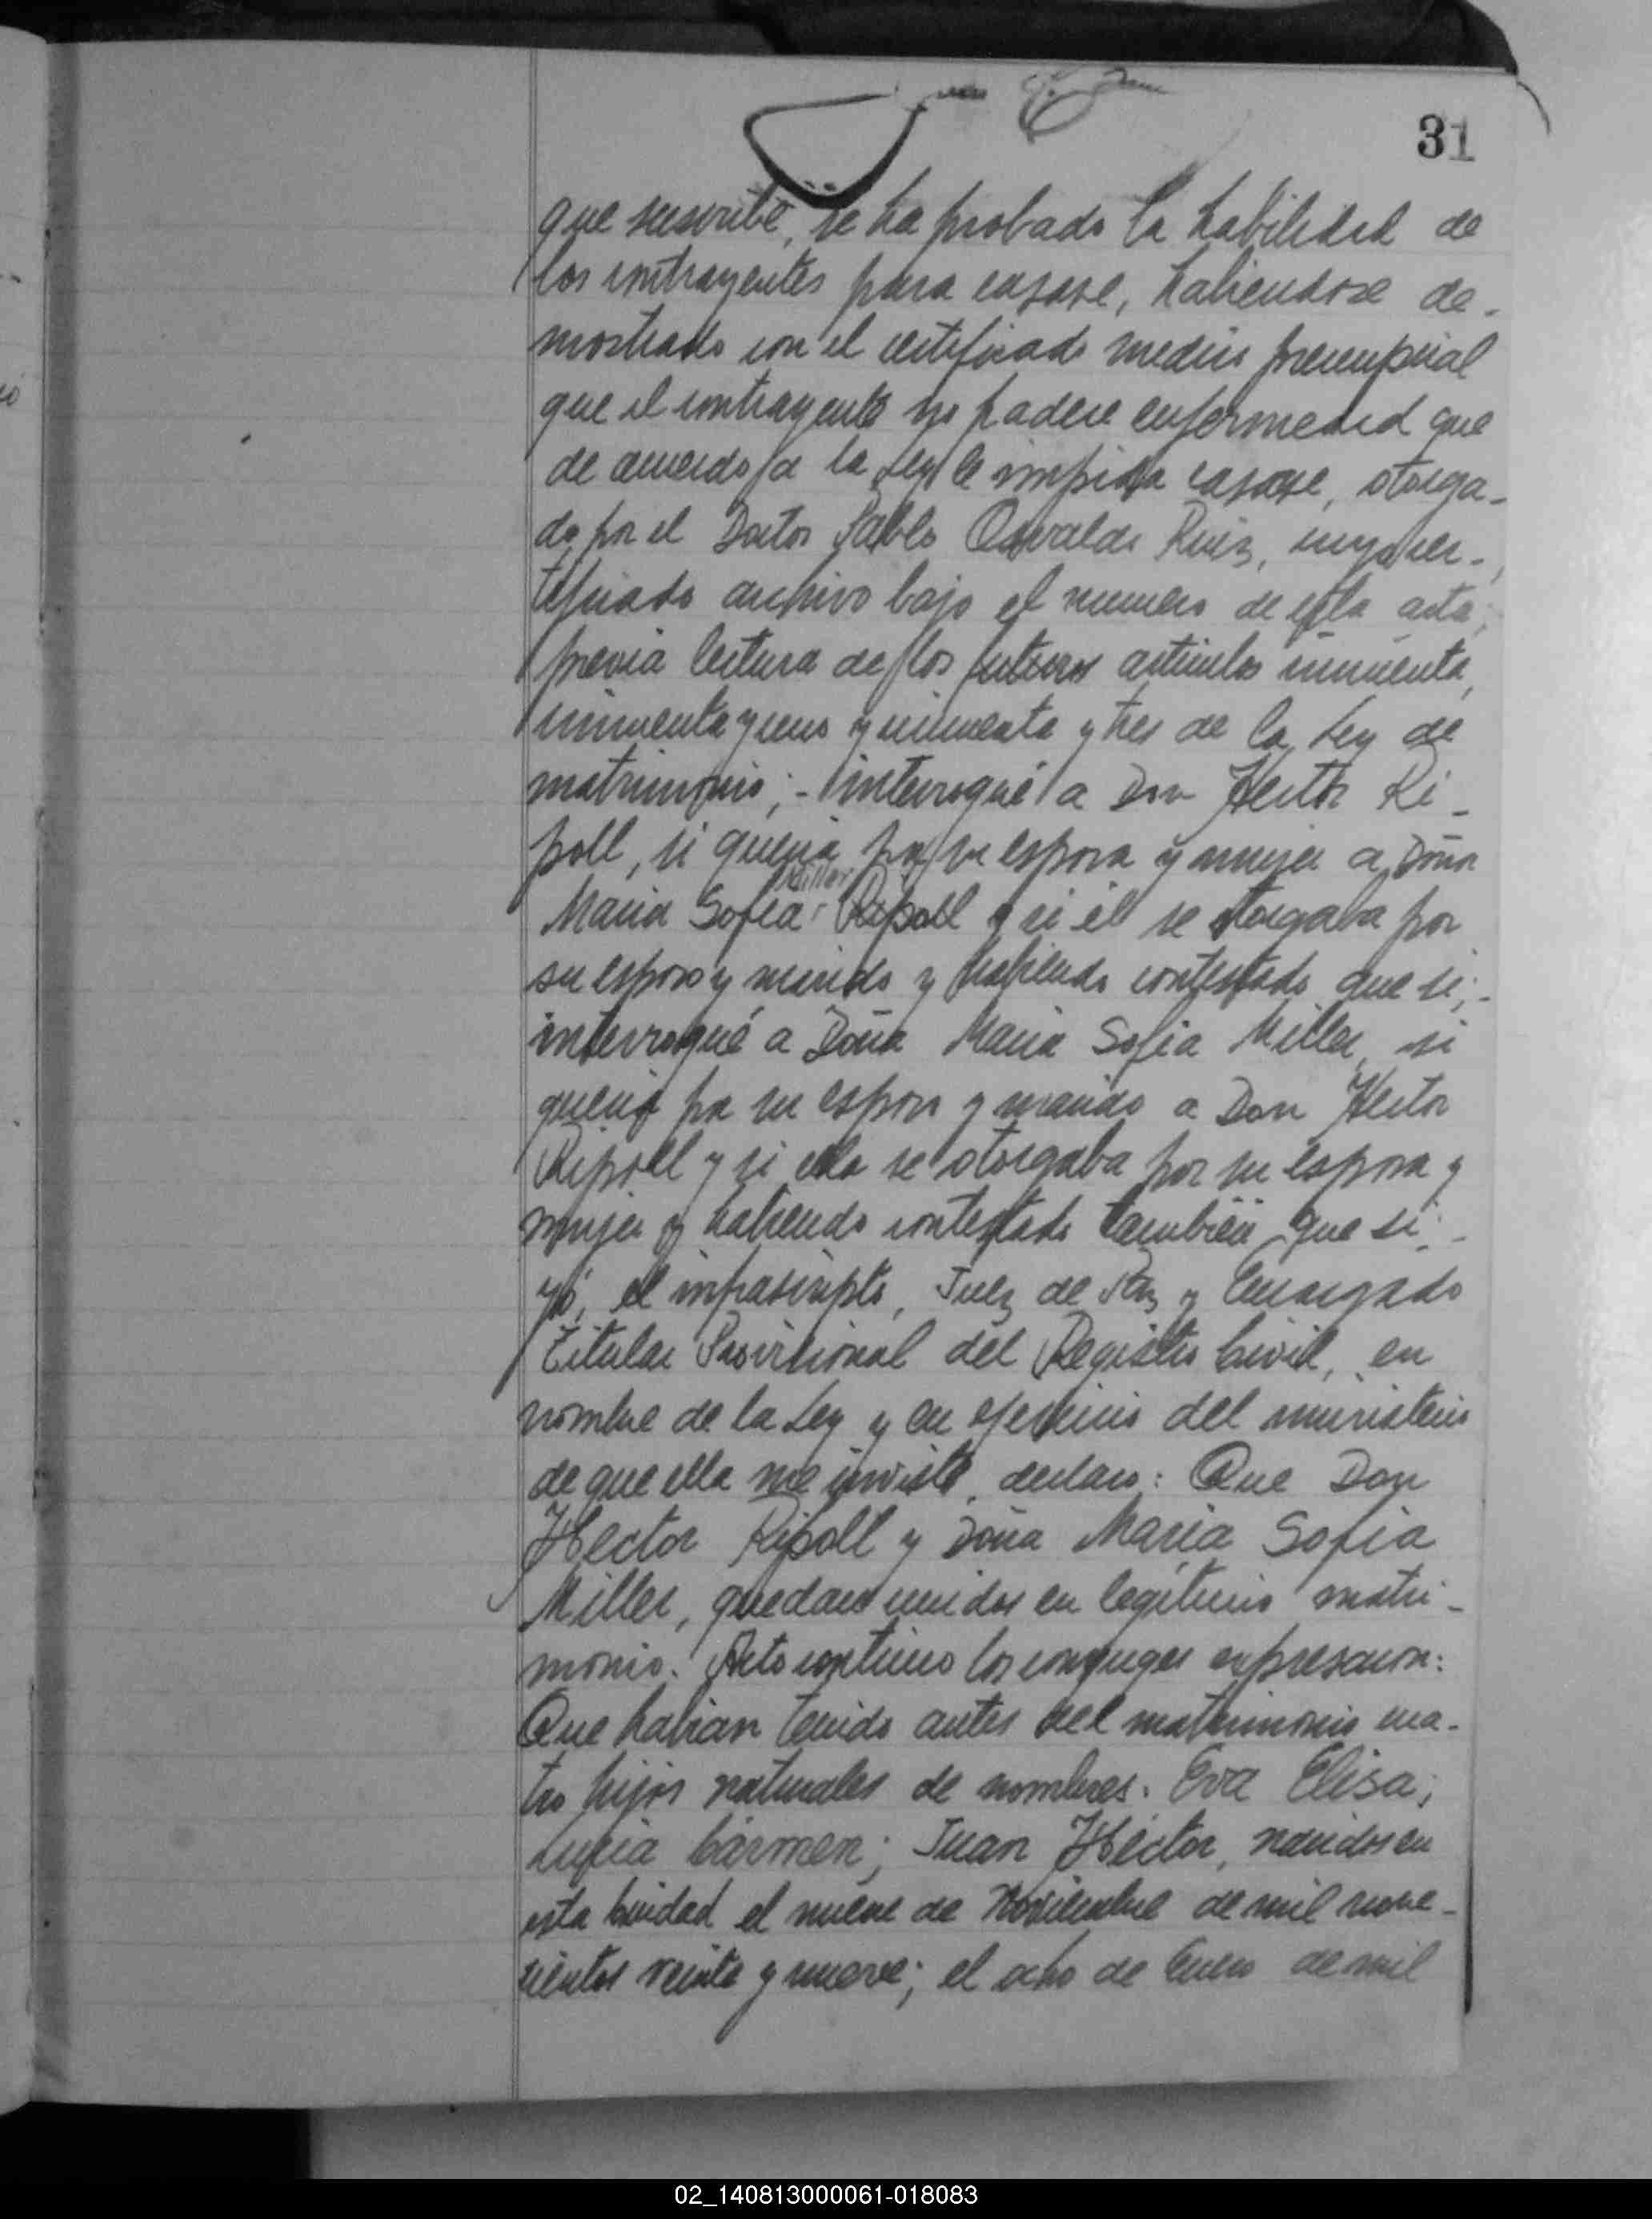 31
que suscribe, se ha probado la habilidad de
los contrayentes para casarse, habiendose de-
mostrado con el certificado medico prenupcial
que el contrayente no padece enfermedad que
de acuerdo a la Ley le impida casarse, otorga-
do por el Doctor Pablo Osvaldo Ruiz, cuyo cer-
tificado archivo bajo el numero de esta acta;
previa lectura de los futuros articulos cincuenta,
cincuenta y uno y cincuenta y tres de la Ley de
matrimonio; - interrogué a Don Hector Ri-
poll, si queria por su esposa y mujer a Doña
Miller
Maria Sofia Ripoll y si él se otorgaba por
su esposo y marido y habiendo contestado que si; -
interrogué a Doña Maria Sofia Miller, si
queria por su esposo y marido a Don Hector
Ripoll y si ella se otorgaba por su esposa y
mujer y habiendo contestado también que si; -
yó, el infrascripto, Juez de Paz y Encargado
Titular Provisional del Registro Civil, en
nombre de la Ley y en ejercicio del ministerio
de que ella me inviste, declaro: Que Don
Hector Ripoll y Doña Maria Sofia
Miller, quedan unidos en legitimo matri-
monio. Acto continuo los conyuges expresaron:
Que habian tenido antes del matrimonio cua-
tro hijos naturales de nombres: Eva Elisa;
Lucia Cármen; Juan Héctor, nacidos en
esta Ciudad el nueve de Noviembre de mil nove-
cientos veinte y nueve; el ocho de Enero de mil
02_140813000061-018083